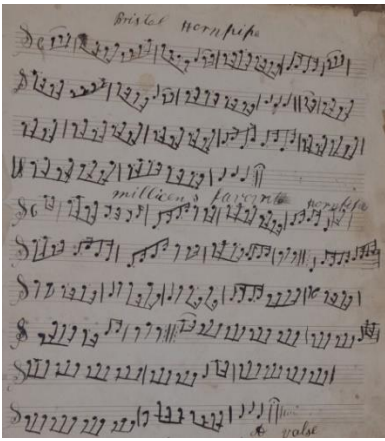 Bristol Hornpipe
millicen's favorite hornpipe
A valse